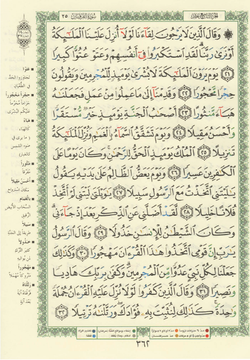 وَقَالَ الَّذِينَ لَا يَرْجُونَ لِقَاءَنَا لَوْلَا أُنْزِلَ عَلَيْنَا الْمَلَائِكَةُ
أَوْ نَرَىٰ رَبَّنَا لَقَدِ اسْتَكْبَرُوا فِي أَنْفُسِهِمْ وَعَتَوْ عُتُوًّا كَبِيرًا
﴿٢١﴾ يَوْمَ يَرَوْنَ الْمَلَائِكَةَ لَا بُشْرَىٰ يَوْمَئِذٍ لِلْمُجْرِمِينَ وَيَقُولُونَ
حِجْرًا مَحْجُورًا ﴿٢٢﴾ وَقَدِمْنَا إِلَىٰ مَا عَمِلُوا مِنْ عَمَلٍ فَجَعَلْنَاهُ
هَبَاءً مَنْثُورًا ﴿٢٣﴾ أَصْحَابُ الْجَنَّةِ يَوْمَئِذٍ خَيْرٌ مُسْتَقَرًّا
وَأَحْسَنُ مَقِيلًا ﴿٢٤﴾ وَيَوْمَ تَشَقَّقُ السَّمَاءُ بِالْغَمَامِ وَنُزِّلَ الْمَلَائِكَةُ
تَنْزِيلًا ﴿٢٥﴾ الْمُلْكُ يَوْمَئِذٍ الْحَقُّ لِلرَّحْمَٰنِ وَكَانَ يَوْمًا عَلَى
الْكَافِرِينَ عَسِيرًا ﴿٢٦﴾ وَيَوْمَ يَعَضُّ الظَّالِمُ عَلَىٰ يَدَيْهِ يَقُولُ
يَا لَيْتَنِي اتَّخَذْتُ مَعَ الرَّسُولِ سَبِيلًا ﴿٢٧﴾ يَا وَيْلَتَىٰ لَيْتَنِي لَمْ أَتَّخِذْ
فُلَانًا خَلِيلًا ﴿٢٨﴾ لَقَدْ أَضَلَّنِي عَنِ الذِّكْرِ بَعْدَ إِذْ جَاءَنِي
وَكَانَ الشَّيْطَانُ لِلْإِنْسَانِ خَذُولًا ﴿٢٩﴾ وَقَالَ الرَّسُولُ
يَا رَبِّ إِنَّ قَوْمِي اتَّخَذُوا هَٰذَا الْقُرْآنَ مَهْجُورًا ﴿٣٠﴾ وَكَذَٰلِكَ
جَعَلْنَا لِكُلِّ نَبِيٍّ عَدُوًّا مِنَ الْمُجْرِمِينَ وَكَفَىٰ بِرَبِّكَ هَادِيًا
وَنَصِيرًا ﴿٣١﴾ وَقَالَ الَّذِينَ كَفَرُوا لَوْلَا نُزِّلَ عَلَيْهِ الْقُرْآنُ جُمْلَةً
وَاحِدَةً كَذَٰلِكَ لِنُثَبِّتَ بِهِ فُؤَادَكَ وَرَتَّلْنَاهُ تَرْتِيلًا ﴿٣٢﴾
٣٦٢